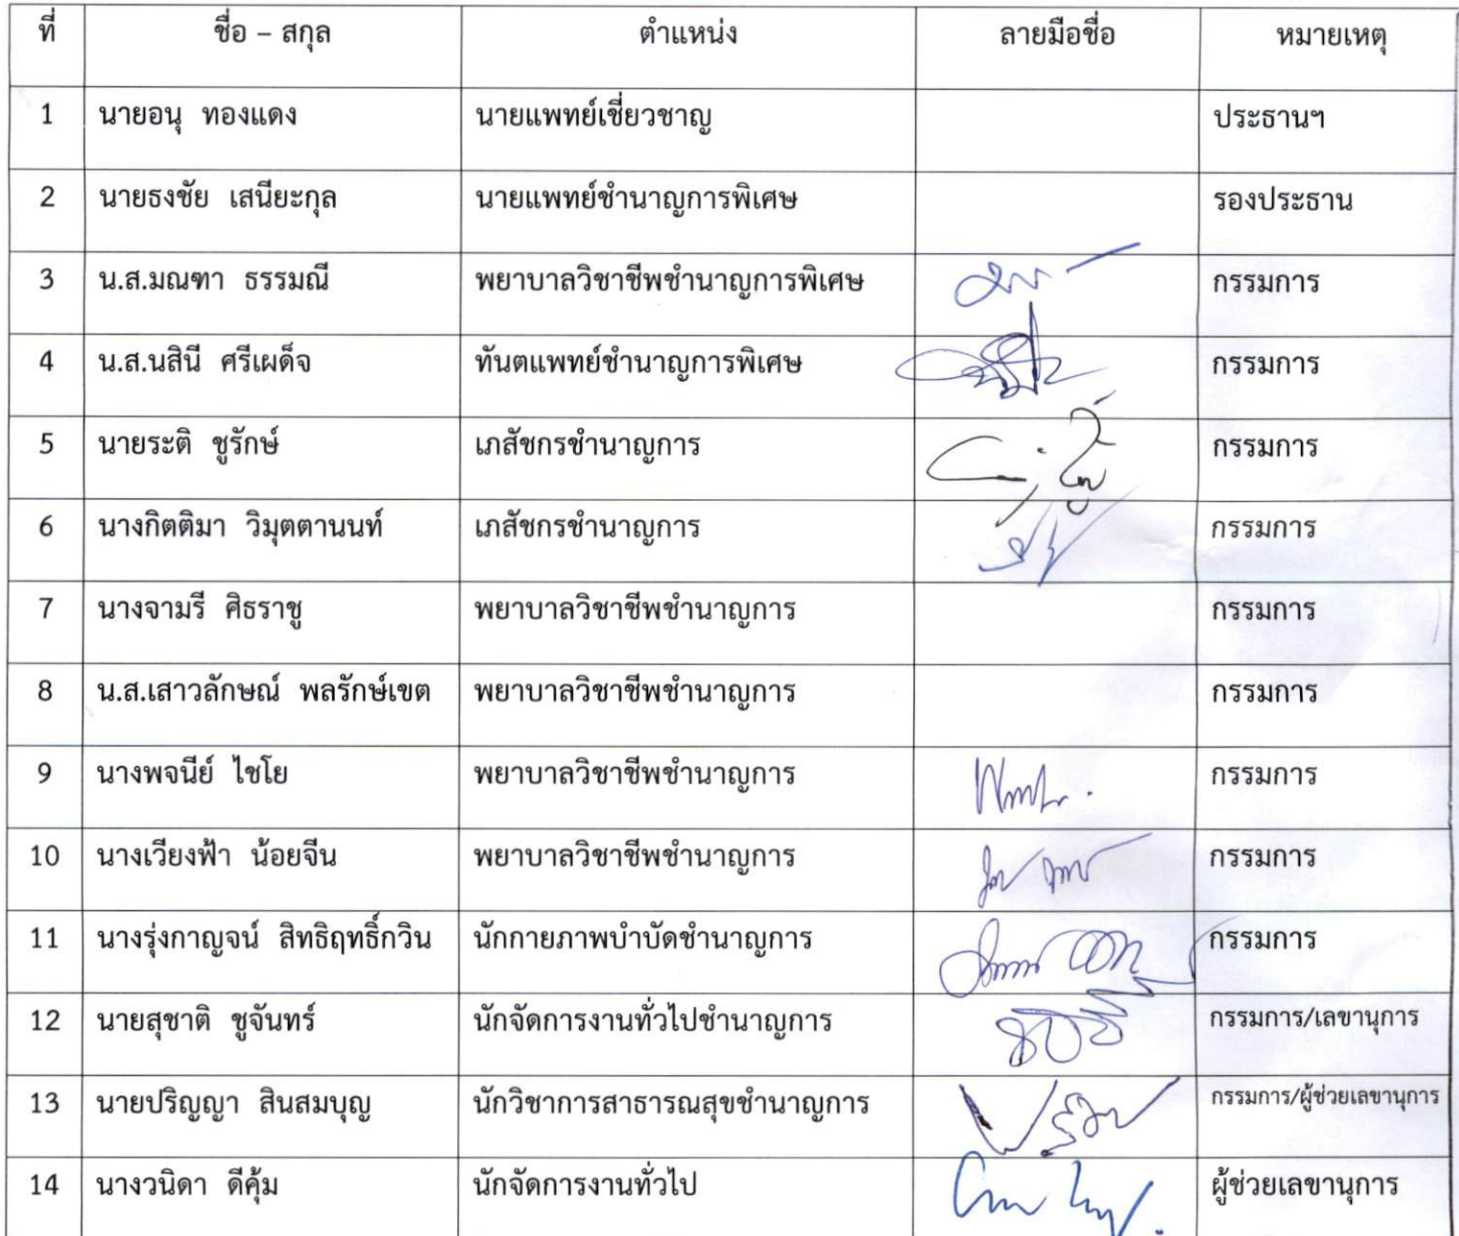 ที่ ชื่อ – สกุล ตำแหน่ง ลายมือชื่อ หมายเหตุ
1 นายอนุ ทองแดง นายแพทย์เชี่ยวชาญ ประธานฯ
2 นายธงชัย เสนียะกุล นายแพทย์ชำนาญการพิเศษ รองประธาน
3 น.ส.มณฑา ธรรมณี พยาบาลวิชาชีพชำนาญการพิเศษ กรรมการ
4 น.ส.นสินี ศรีเผด็จ ทันตแพทย์ชำนาญการพิเศษ กรรมการ
5 นายระติ ชูรักษ์ เภสัชกรชำนาญการ กรรมการ
6 นางกิตติมา วิมุตตานนท์ เภสัชกรชำนาญการ กรรมการ
7 นางจามรี ศิธราชู พยาบาลวิชาชีพชำนาญการ กรรมการ
8 น.ส.เสาวลักษณ์ พลรักษ์เขต พยาบาลวิชาชีพชำนาญการ กรรมการ
9 นางพจนีย์ ไชโย พยาบาลวิชาชีพชำนาญการ กรรมการ
10 นางเวียงฟ้า น้อยจีน พยาบาลวิชาชีพชำนาญการ กรรมการ
11 นางรุ่งกาญจน์ สิทธิฤทธิ์กวิน นักกายภาพบำบัดชำนาญการ กรรมการ
12 นายสุชาติ ชูจันทร์ นักจัดการงานทั่วไปชำนาญการ กรรมการ/เลขานุการ
13 นายปริญญา สินสมบุญ นักวิชาการสาธารณสุขชำนาญการ กรรมการ/ผู้ช่วยเลขานุการ
14 นางวนิดา ดีคุ้ม นักจัดการงานทั่วไป ผู้ช่วยเลขานุการ